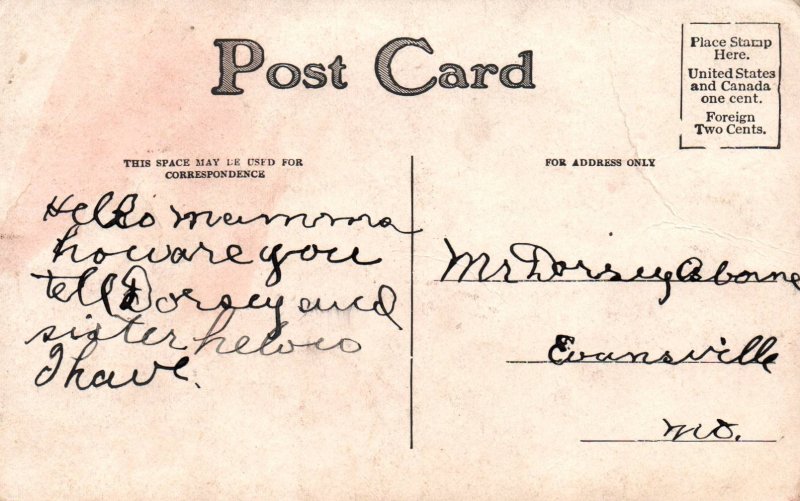 Post Card
Place Stamp
Here.
United States
and Canada
one cent.
Foreign
Two Cents.
THIS SPACE MAY BE USED FOR
CORRESPONDENCE
FOR ADDRESS ONLY
Hello mamma
how are you
tell Dorsey and
sister
I have.
Mr Dorsey Asborne
Evansville
Mo.